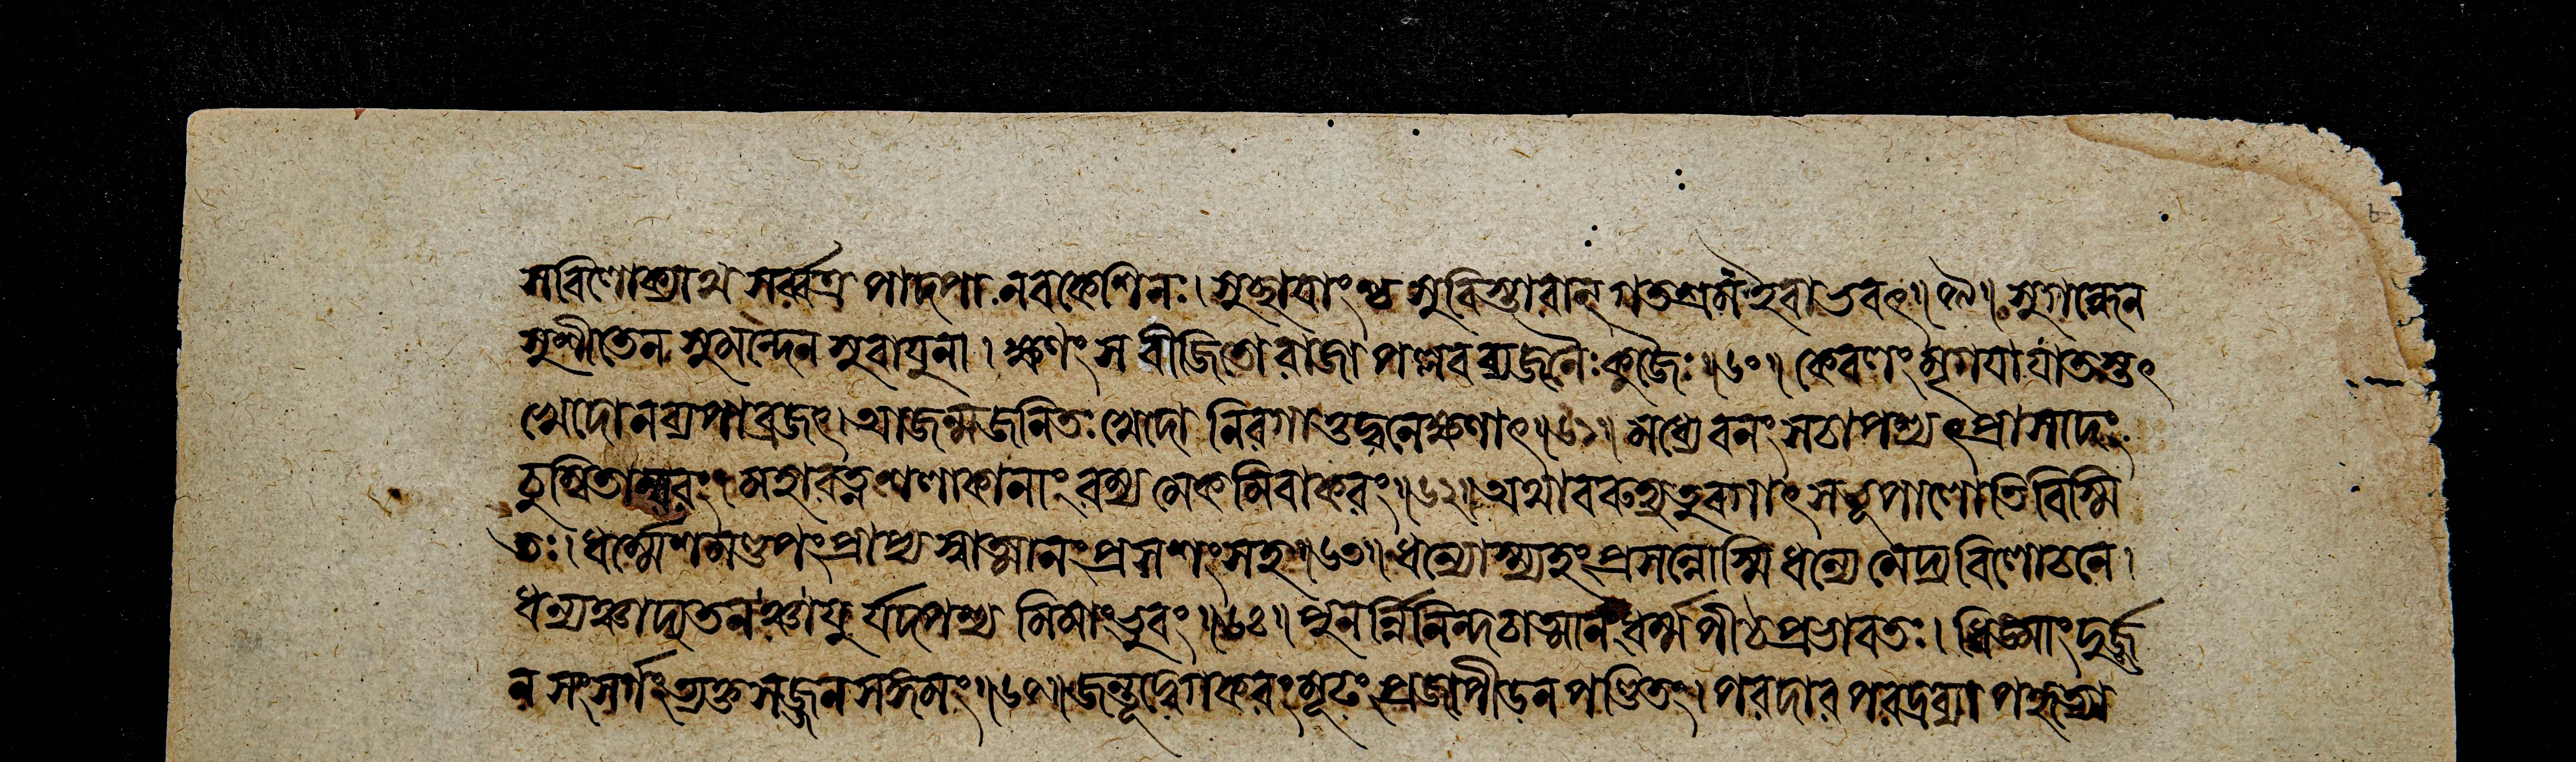 স বিলোক্যাথ সর্ব্বত্র পাদপা নবকেশিনঃ। সুচ্ছায়াংশ্চ সুবিস্তারান্ গতশ্রম ইবাভবৎ॥৫৯॥ সুগন্ধেন
সুশীতেন সুমন্দেন সুবায়ুনা। ক্ষণং স বীজিতো রাজা পল্লবব্যজনৈঃ কুজৈঃ॥৬০॥ কেবলং মৃগয়াযাতস্তৎ
খেদো ন ব্যপাব্রজৎ। আজন্মজনিতঃ খেদো নিরগাত্তদ্বনেক্ষণাৎ॥৬১॥ মধ্যে বনং সচাপশ্যৎ প্রাসাদং
চুম্বিতাম্বরং। মহারত্নশলাকানাং রম্যমেকমিবাকরং॥৬২॥ অথাবরুহ্য তুরগাৎ স ভূপালোতিবিস্মি
তঃ। ধর্ম্মেশমণ্ডপং প্রাপ্য স্বাত্মানং প্রশশংসহ॥৬৩॥ ধন্যোস্ম্যহং প্রসন্নোস্মি ধন্যে মেদ্য বিলোচনে।
ধন্যঞ্চাদ্যতনঞ্চায়ুর্যদপশ্যমিমাং ভুবং॥৬৪॥ পুনর্ন্নিনিন্দচাত্মানং ধর্ম্মপীঠপ্রভাবতঃ। ধিঙ্মাং দুর্জ্জ
ন সংসর্গং ত্যক্তসজ্জনসঙ্গমং॥৬৫॥ জন্তূদ্বেগকরং মূঢং প্রজাপীড়নপণ্ডিতং। পরদারপরদ্রব্যাপহৃত্যা